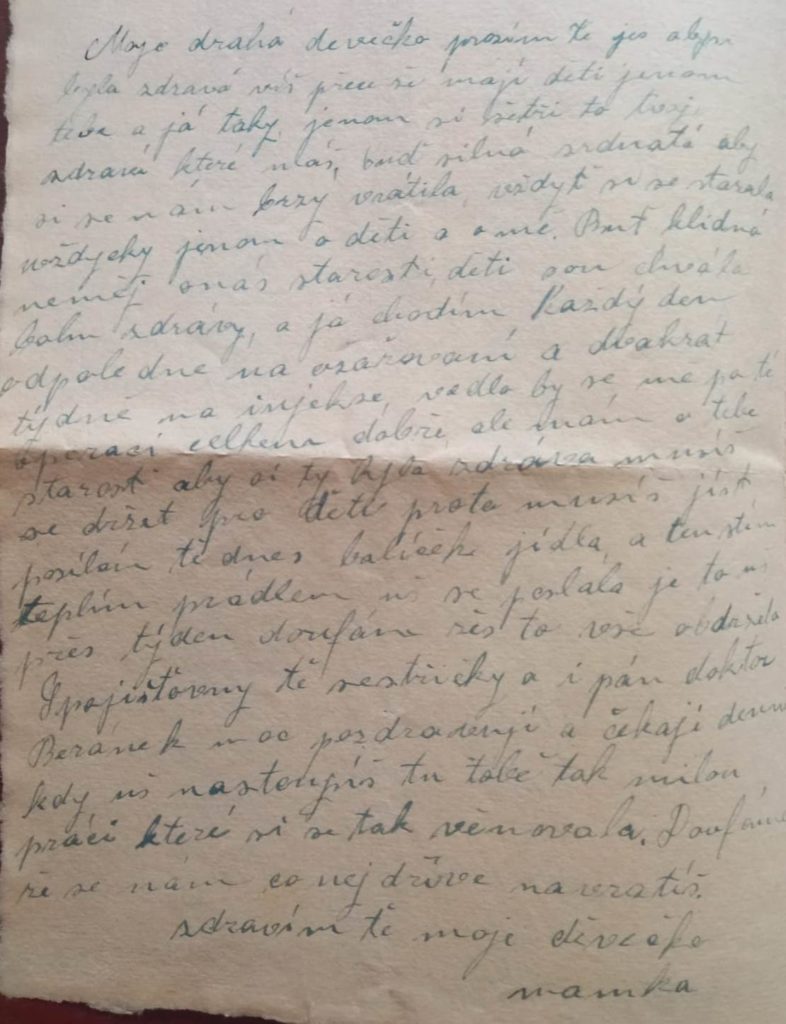 Moje drahá děvečko prosím tě jes abys
byla zdravá víš přece že mají děti jenom
tebe a já taky, jenom si šetři to tvoje
zdraví které máš, buď silná srdnatá aby
si se nám brzy vrátila, vždyť si se starala
vždycky jenom o děti a o mě. Buť klidná
neměj onás starosti, děti sou chvála
bohu zdrávy, a já chodím Každý den
odpoledne na ozařovaní a dvakrát
týdně na injekse, vedlo by se me po té
operaci celkem dobře, ale mám o tebe
starost aby si ty byla zdráva musíš
se držet pro děti proto musíš jíst
posílám tě dnes balíček jídla, a ten stím
teplím prádlem uš se poslala je to uš
přes týden doufám žes to vše obdržela
Spojišťovny tě sestřičky a i pán doktor
Beránek moc pozdravují a čekají denně
kdy uš nastoupíš tu tobě tak milou
práci které si se tak věnovala. Doufáme
že se nám co nejdříve navratíš.
zdravím tě moje děvečko
mamka